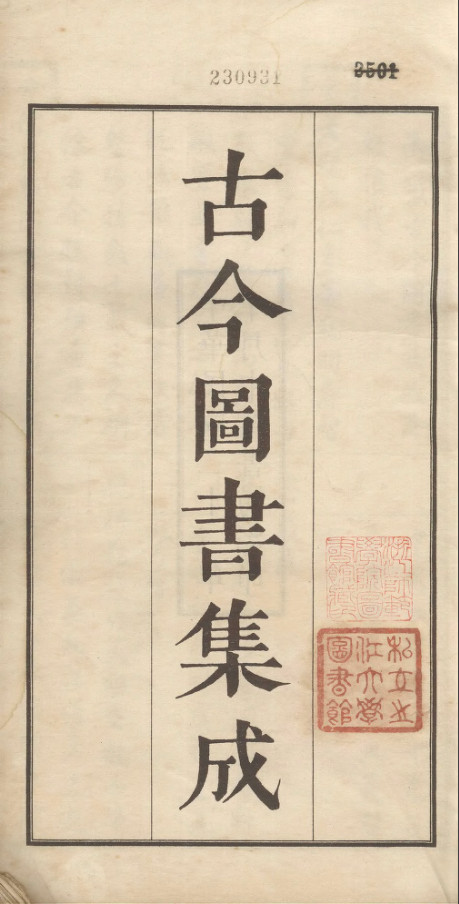 230931
3501
古今圖書集成
私立之
江大學
圖書館